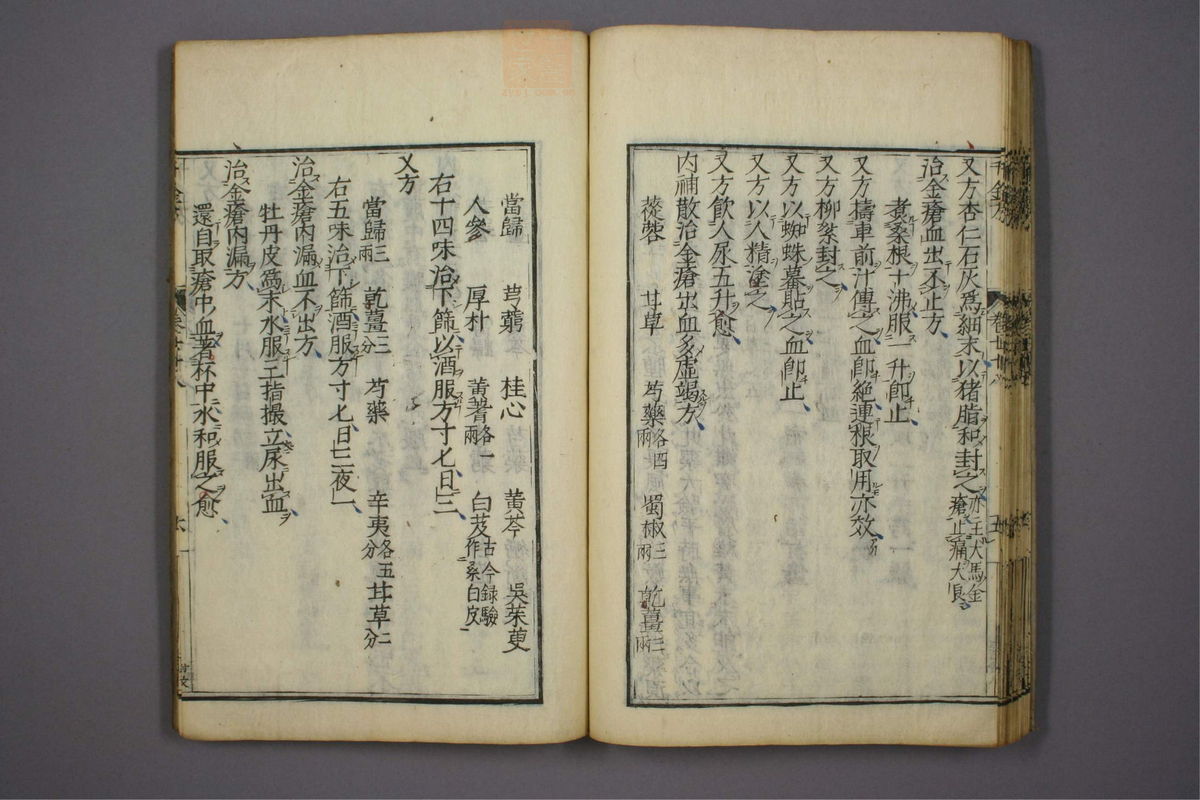 又方杏仁石灰爲細末以猪脂和封之亦主犬馬金瘡止痛大良
治金瘡血出不止方
煮桑根十沸服一升即止
又方擣車前汁傅之血即絶連根取用亦效
又方柳絮封之
又方以蜘蛛幕貼之血即止
又方以人精塗之
又方飲人尿五升愈
内補散治金瘡出血多虚竭方
蓯蓉 甘草 芍藥各四兩 蜀椒三兩 乾薑三兩
當歸 芎藭 桂心 黄芩 吳茱萸
人參 厚朴 黄耆各一兩 白芨古今録驗作桑白皮
右十四味治下篩以酒服方寸匕日三
又方
當歸三兩 乾薑三分 芍藥 辛夷各五分 甘草二分
右五味治下篩酒服方寸匕日三夜一
治金瘡内漏血不出方
牡丹皮爲末水服三指撮立尿出血
治金瘡内漏方
還自取瘡中血著杯中水和服之愈